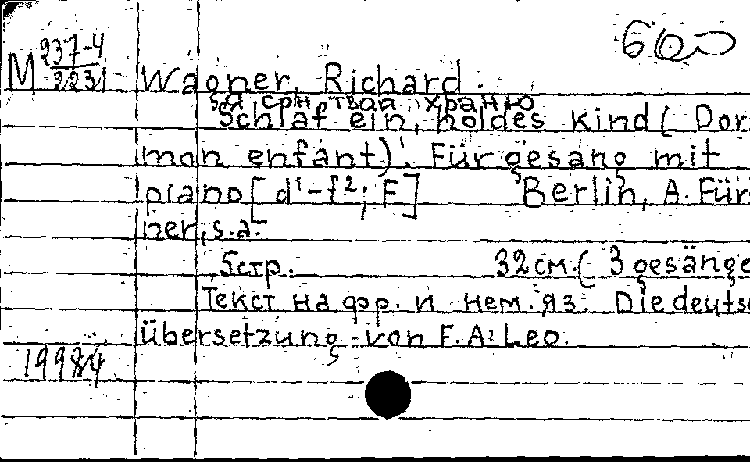 600
M 237-4
3231
Wagner, Richard.
Schlaf ein, holdes Kind ( Dor
mon enfant). Für gesang mit
piano [d¹-f²; F] Berlin, A. Für
ner, s.a.
5стр. 32см. ( 3 gesänge
Текст на фр. и нем. яз. Die deuts
übersetzung von F. A. Leo.